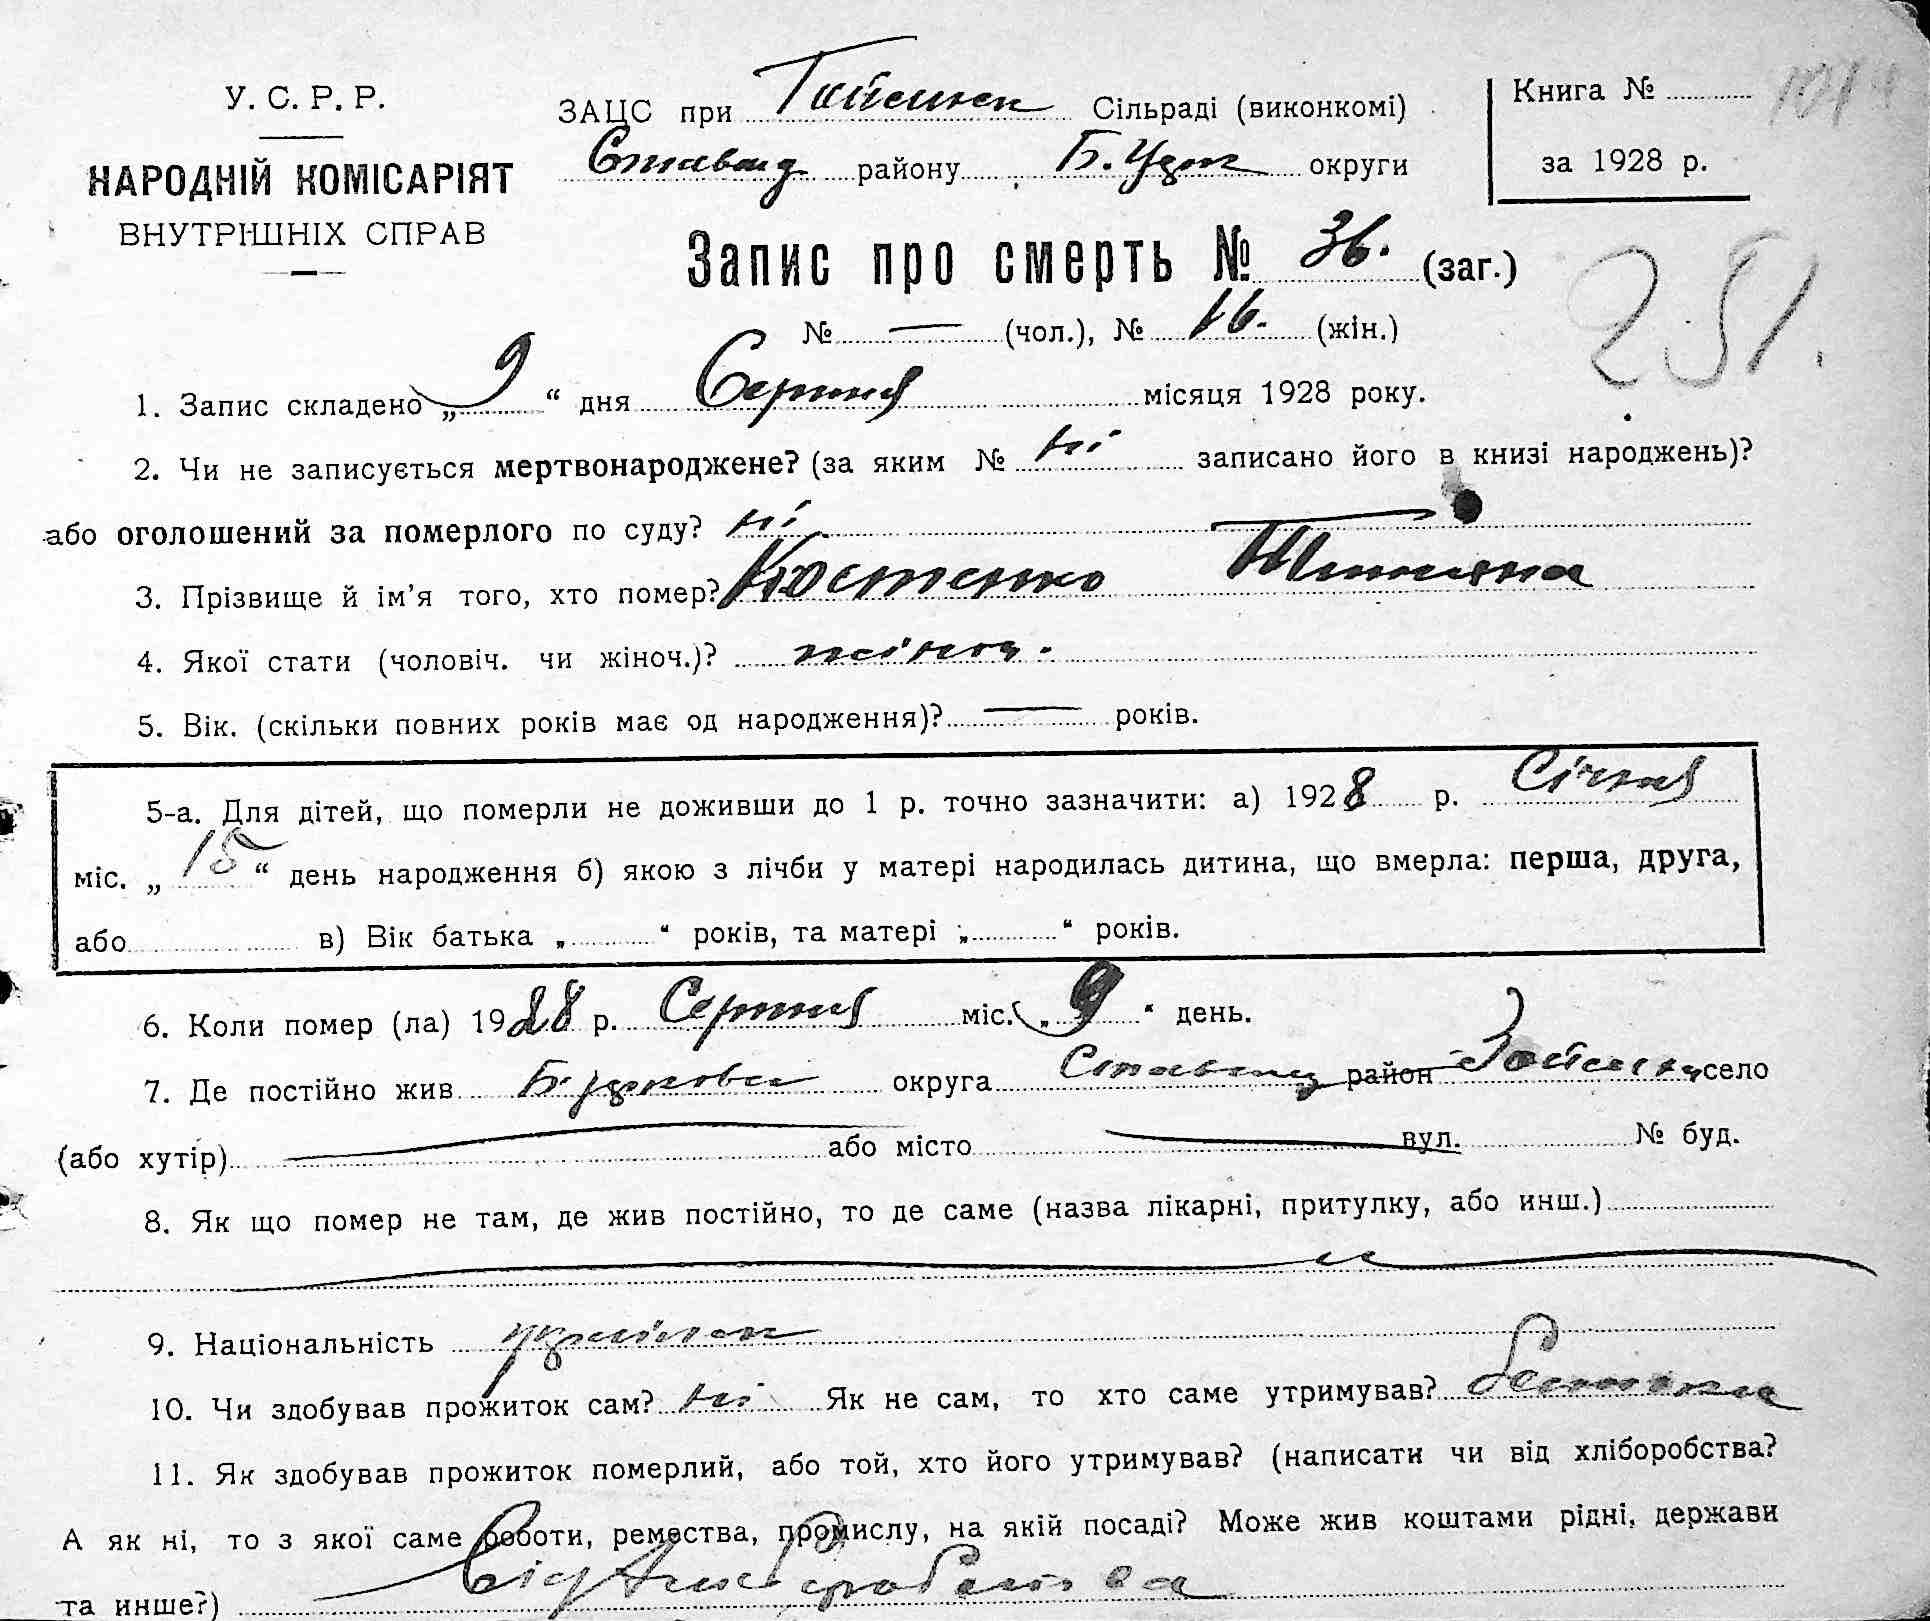 У. С. Р. Р.
НАРОДНІЙ КОМІСАРІЯТ
ВНУТРІШНІХ СПРАВ
ЗАЦС при Сільраді (виконкомі)
Ставищ району Б. Церк округи
Книга №
за 1928 р.
Запис про смерть № 36. (заг.)
251.
№ — (чол.), № 16. (жін.)
1. Запис складено „ 9 “ дня Серпня місяця 1928 року.
2. Чи не записується мертвонароджене? (за яким № ні записано його в книзі народжень)?
або оголошений за померлого по суду? ні
3. Прізвище й ім'я того, хто помер? Костенко Тетяна
4. Якої стати (чоловіч. чи жіноч.)? жіноч.
5. Вік. (скільки повних років має од народження)? — років.
5-а. Для дітей, що померли не доживши до 1 р. точно зазначити: а) 1928 р. Січня
міс. „ 15 “ день народження б) якою з лічби у матері народилась дитина, що вмерла: перша, друга,
або в) Вік батька „ “ років, та матері „ “ років.
6. Коли помер (ла) 1928 р. Серпня міс. „ 9 “ день.
7. Де постійно жив округа Ставищ район село
(або хутір) — або місто — вул. № буд.
8. Як що помер не там, де жив постійно, то де саме (назва лікарні, притулку, або инш.)
9. Національність
10. Чи здобував прожиток сам? ні Як не сам, то хто саме утримував? батьки
11. Як здобував прожиток померлий, або той, хто його утримував? (написати чи від хліборобства?
А як ні, то з якої саме роботи, ремества, промислу, на якій посаді? Може жив коштами рідні, держави
та инше?) Від хліборобства